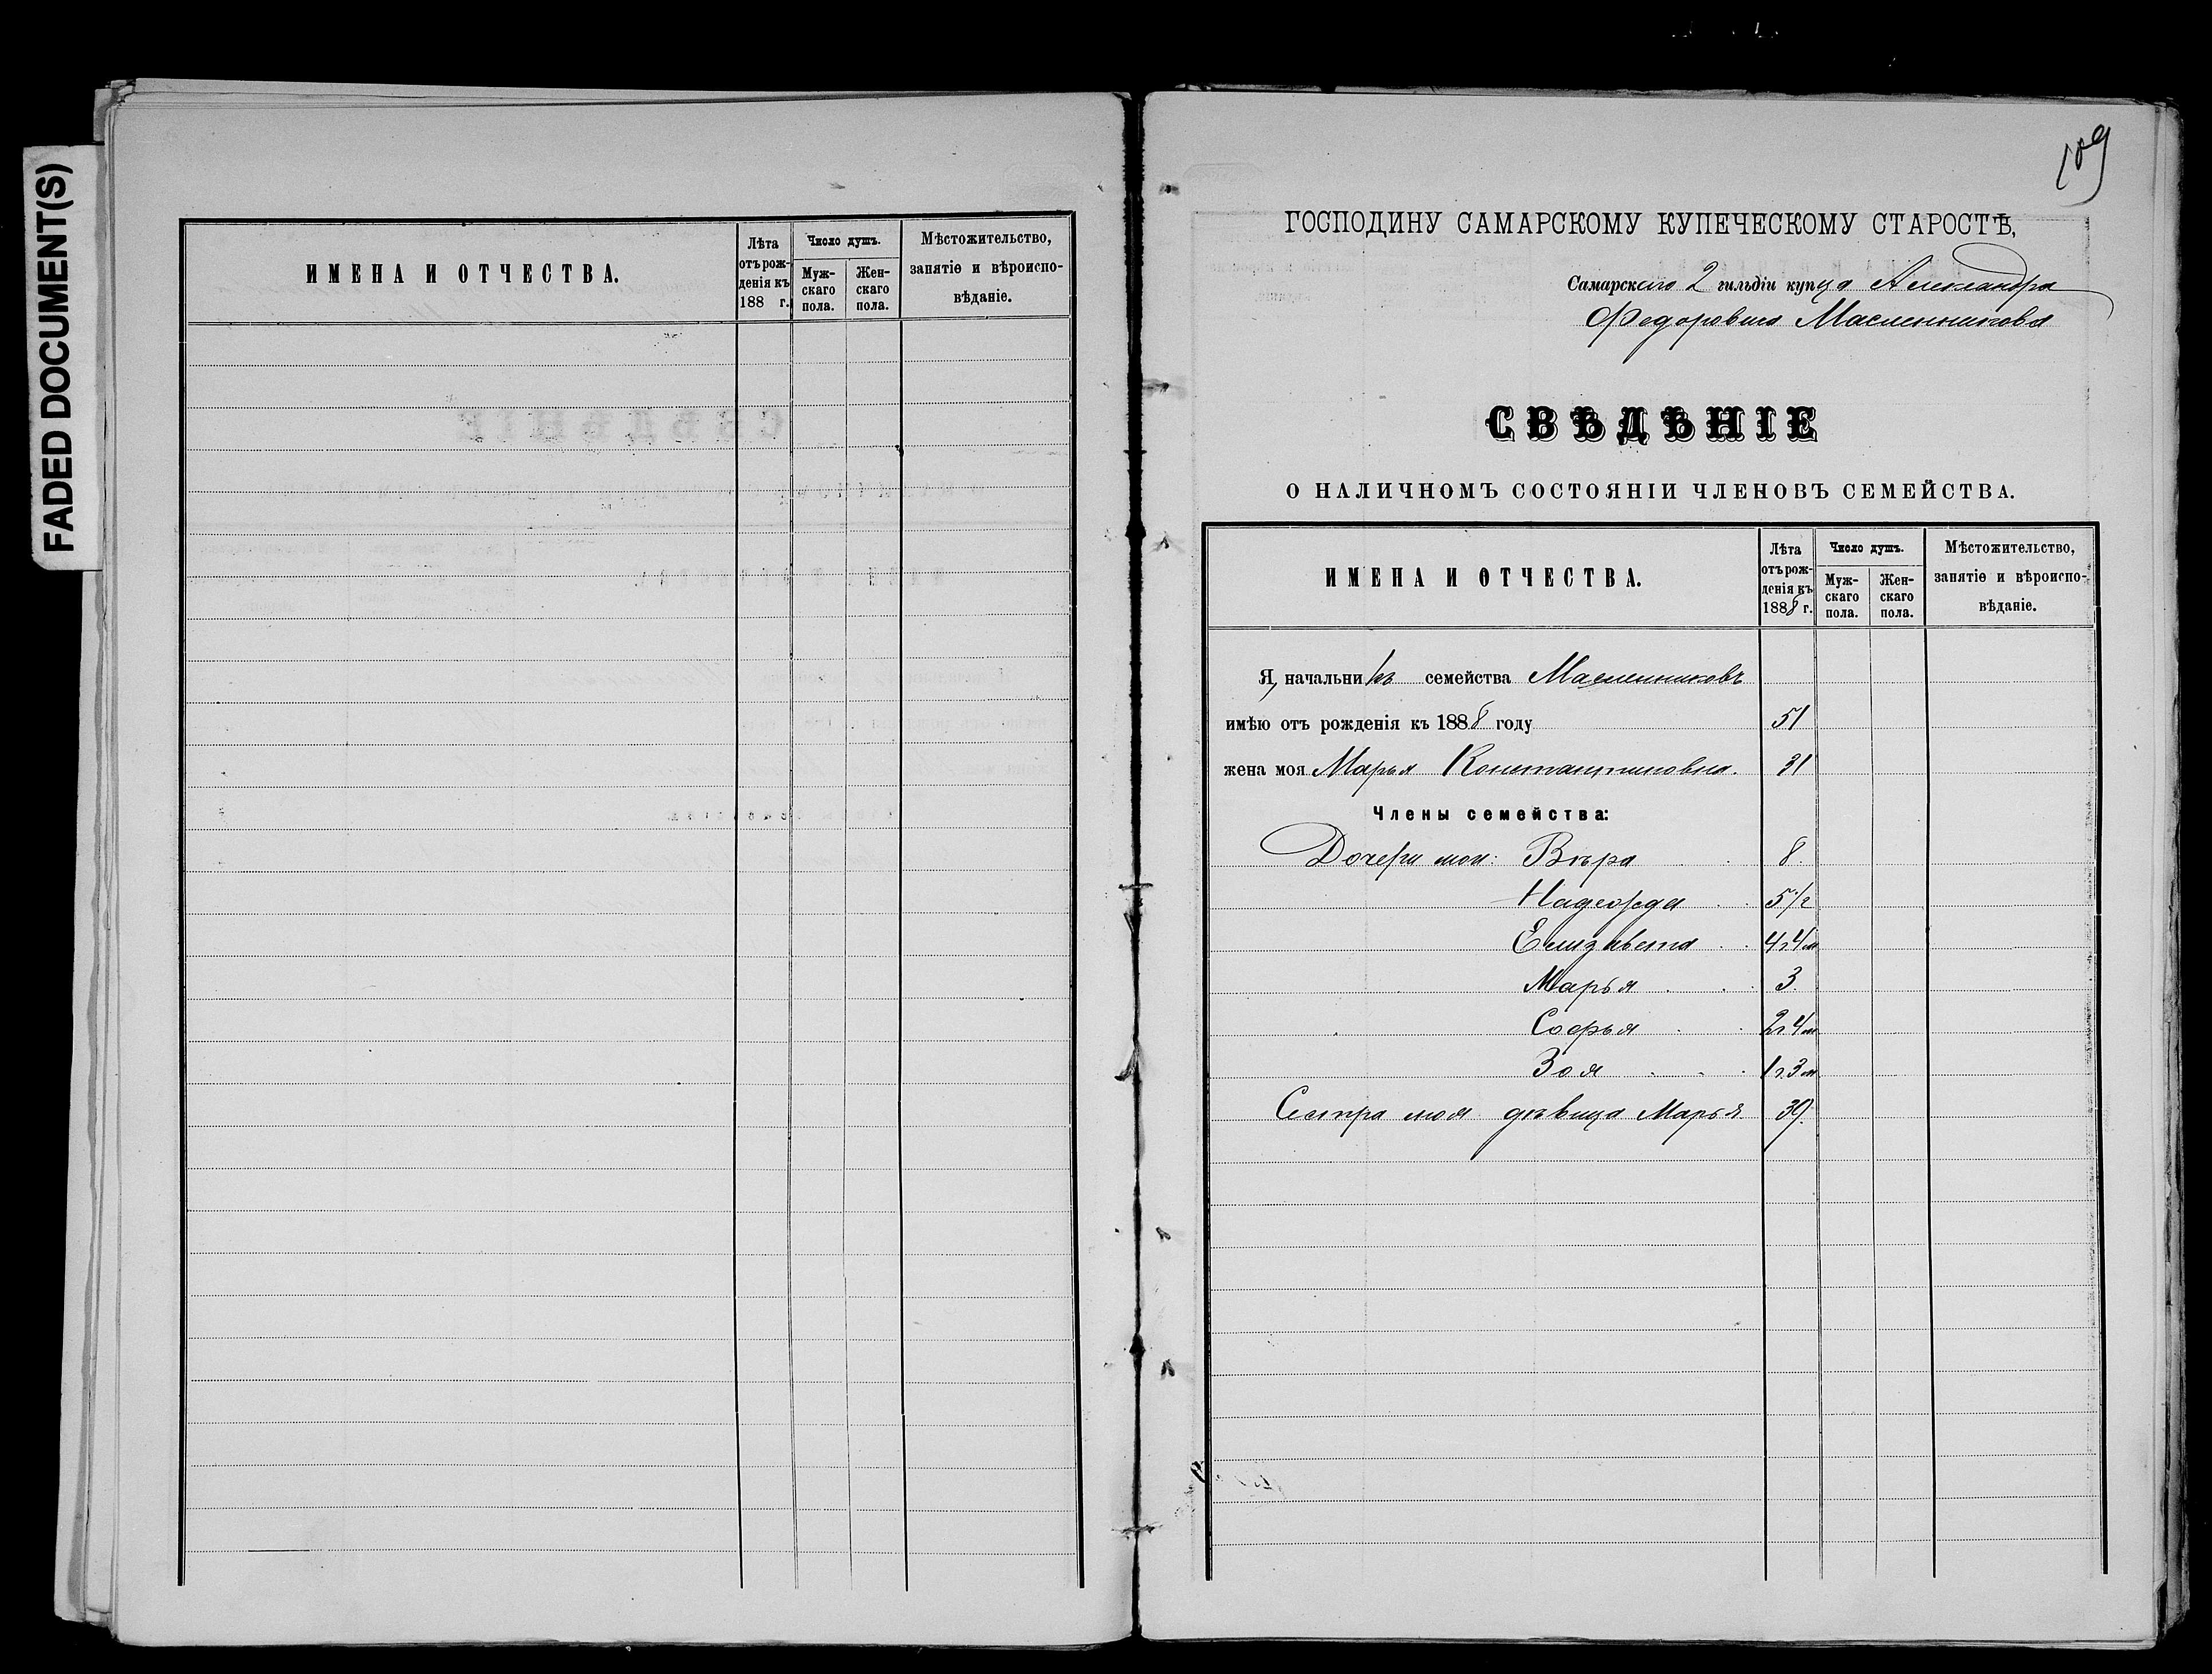 FADED DOCUMENT(S)
ИМЕНА И ОТЧЕСТВА.
Лѣта
отъ рож-
денія къ
188 г.
Число душъ.
Муж-
скаго
пола.
Жен-
скаго
пола.
Мѣстожительство,
занятіе и вѣроиспо-
вѣданіе.
109
ГОСПОДИНУ САМАРСКОМУ КУПЕЧЕСКОМУ СТАРОСТѢ,
Самарскаго 2 гильдіи купца Александра
Федоровича Масленникова
СВѢДѢНІЕ
О НАЛИЧНОМЪ СОСТОЯНІИ ЧЛЕНОВЪ СЕМЕЙСТВА.
ИМЕНА И ОТЧЕСТВА.
Лѣта
отъ рож-
денія къ
1888 г.
Число душъ.
Муж-
скаго
пола.
Жен-
скаго
пола.
Мѣстожительство,
занятіе и вѣроиспо-
вѣданіе.
Я, начальникъ семейства Масленниковъ
имѣю отъ рожденія къ 1888 году 51
жена моя Марья Константиновна. 31
Члены семейства:
Дочери мои: Вѣра 8.
Надежда 5 1/2
Елизавета 4г 4м
Марья 3.
Софья 2г 4м
Зоя 1г. 3м
Сестра моя дѣвица Марья 39.